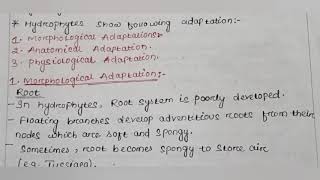 * Hydrophytes show following adaptation:-
1. Morphological Adaptations
2. Anatomical Adaptation.
3. Physiological Adaptation.
1. Morphological Adaptation:-
Root
- In hydrophytes, Root system is poorly developed.
- Floating branches develop adventitious roots from their
nodes which are soft and spongy.
- Sometimes, root becomes spongy to store air
(e.g.